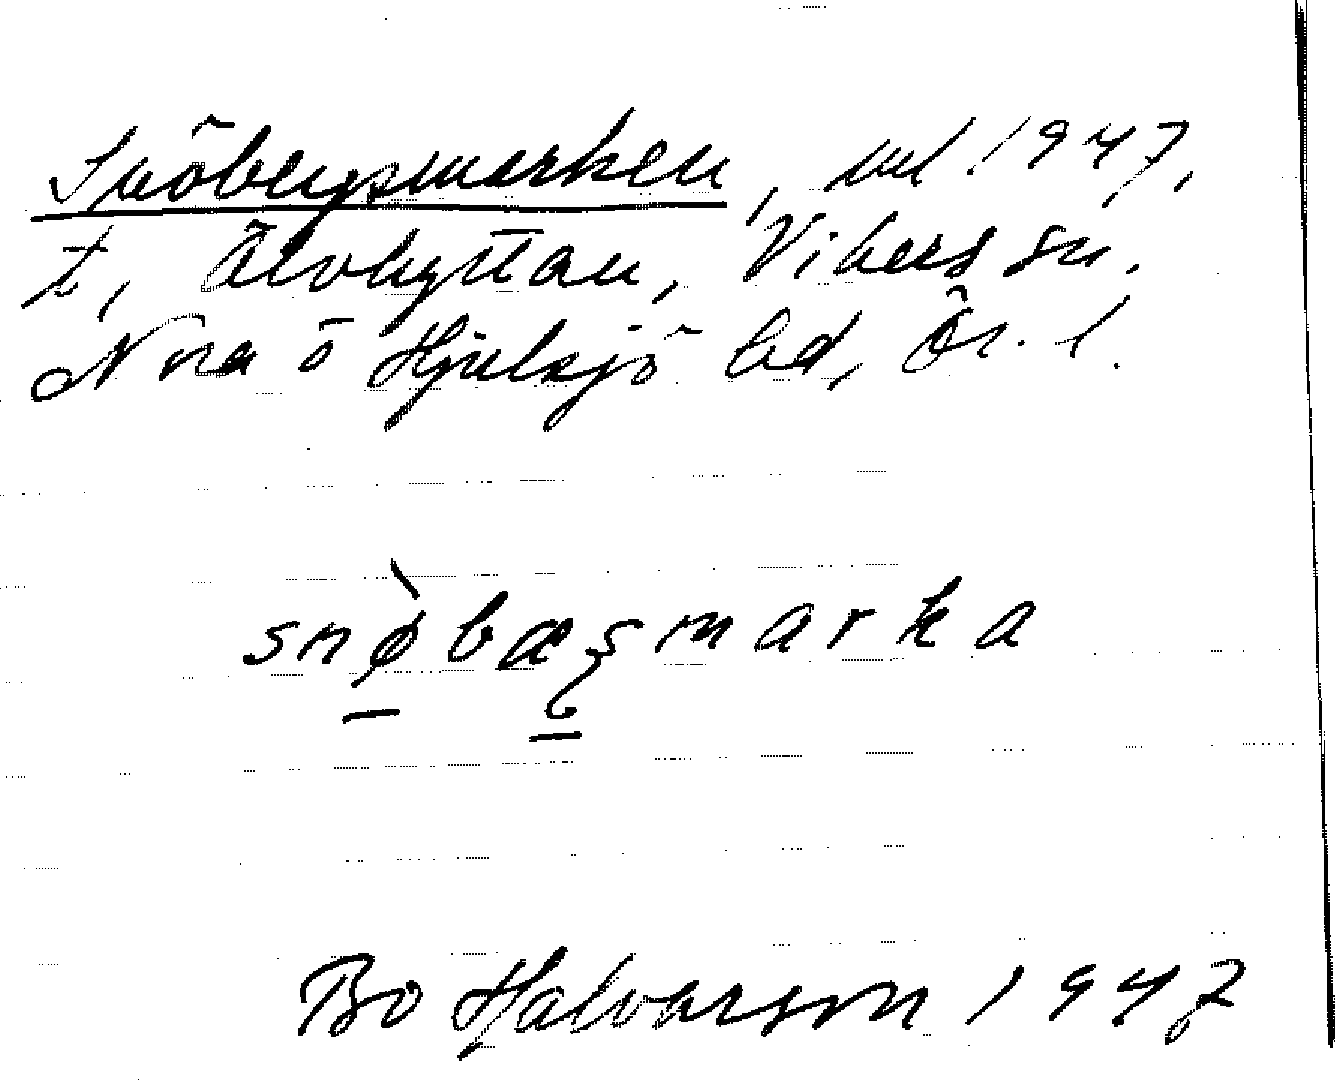 Snöbergsmarken, ul 1947,
t, Älvhyttan, Vikers sn.
Nora o Hjulsjö bd, Ör. l.
snø̀bæʂmarka
Bo Halvarson 1947